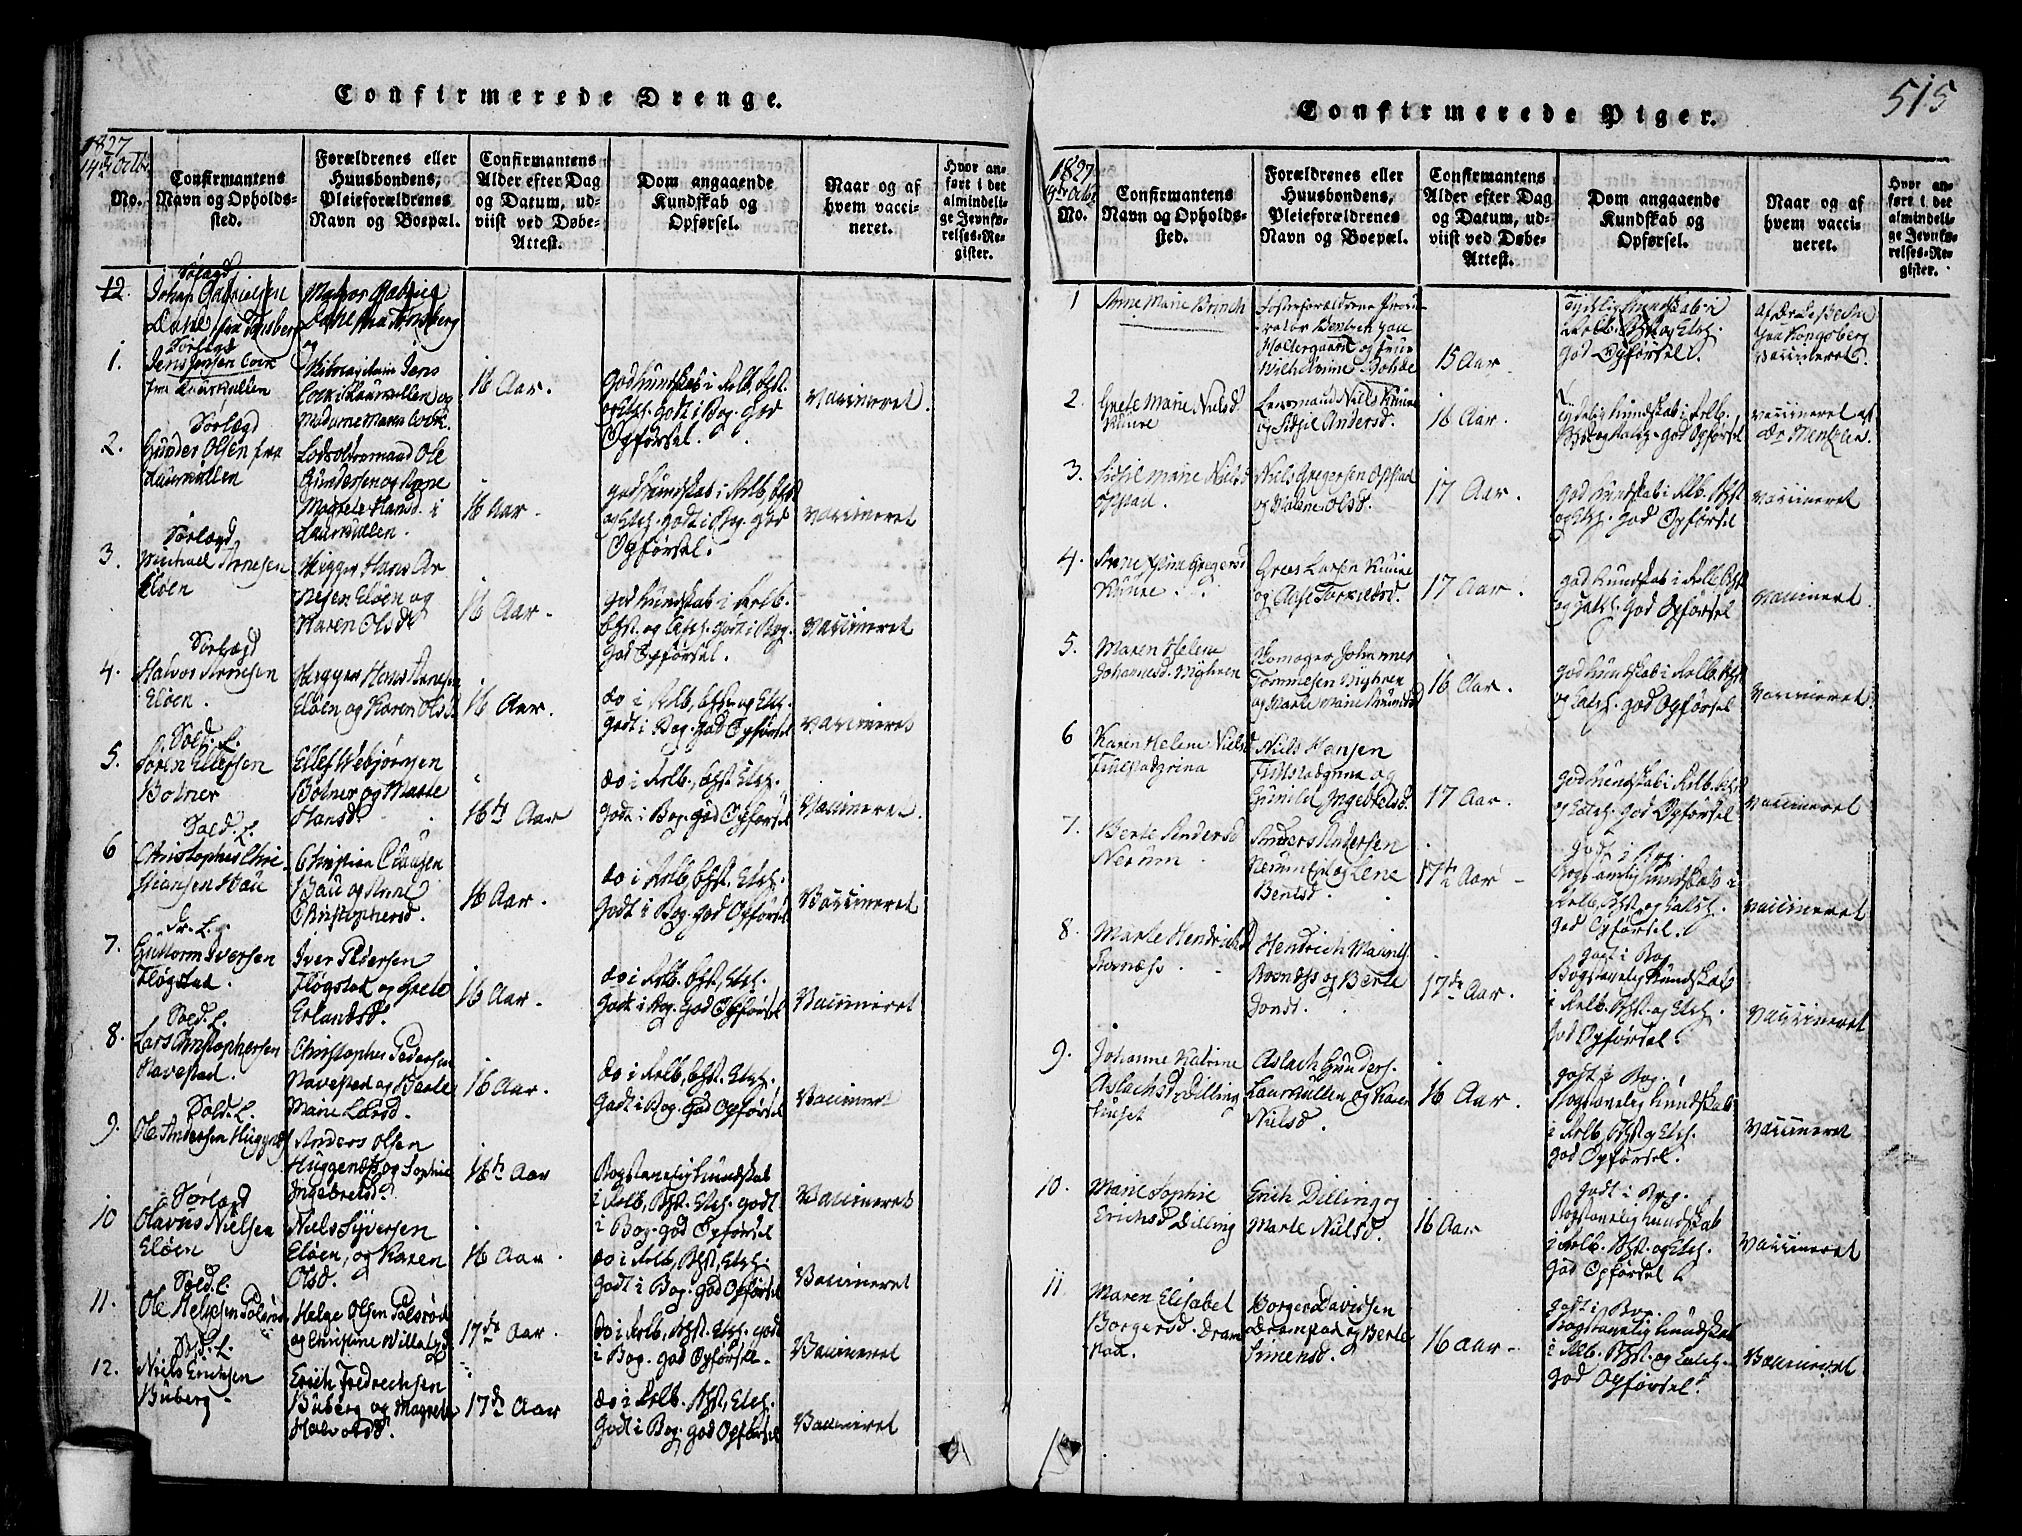 515
Confirmerede Drenge.
1827
14de Octbr
No.
Confirmantens
Navn og Opholds-
sted.
Forældrenes eller
Huusbondens,
Pleieforældrenes
Navn og Boepæl.
Confirmantens
Alder efter Dag
og Datum, ud-
viist ved Døbe-
Attest.
Dom angaaende
Kundskab og
Opførsel.
Naar og af
hvem vacci-
neret.
Hvor an-
ført i det
almindeli-
ge Jevnfø-
relses-Re-
gister.
12.
Sørlægd
Johan Gabrielsen
Dahl fra Tønsberg
Matros Gabriel
Dahl fra Tønsberg
og
1.
Sørlægd
Jens Jensen Cock
fra Laurkullen
Jens
Cock i Laurkullen og
Madame Maren Cock.
16 Aar.
god Kundskab i Relb. Chst.
og Etch. godt i Bog. god
Opførsel.
vaccineret.
2.
Sørlægd
Gunder Olsen fra
Laurkullen
Ole
Gundersen og Anne
Magrete Hansd. i
Laurkullen.
16 Aar.
god Kundskab i Relb. Chst
og Etch. godt i Bog. god
Opførsel.
vaccineret
3.
Sørlægd
Michael Arnesen
Eløen
Skipper Hans Ar
nesen Eløen og
Karen Olsd
16 Aar.
god Kundskab i Relb.
Chst. og Etch. godt i Bog.
god Opførsel.
vaccineret
4.
Sørlægd
Halvor Arnesen
Eløen.
Skipper Hans Arnesen
Eløen og Karen Olsd.
16 Aar.
do i Relb, Chst. og Etch.
godt i Bog. god Opførsel
vaccineret
5.
Sold. L.
Søren Ellefsen
Botner
Ellef Webjørnsen
Botner og Masse
Hansd.
16 ½ Aar
do i Relb, Chst. Etch.
godt i Bog. god Opførsel
Vaccineret.
6
Sold. L.
Christopher Chri
stiansen Bau
Christian Clausen
Bau og Anne
Christophersd.
16 Aar.
do i Relb, Chst. Etch.
godt i Bog. god Opførsel
Vaccineret
7.
Sr. L.
Guttorm Iversen
Fløgstad.
Iver Pedersen
Fløgstad og Grete
Erlandsd.
16 Aar.
do i Relb. Chst, Etch.
godt i Bog. god Opførsel
Vaccineret
8.
Sold. L.
Lars Christophersen
Navestad.
Christopher Pedersen
Navestad og
Marie Larsd.
16 Aar.
do i Relb, Chst. Etch.
godt i Bog. god Opførsel
Vaccineret
9.
Sold. L.
Ole Andersen Huggenæs
Anders Olsen
Huggenæs og Sophie
Ingebretsd.
16 ½ Aar
Bogstavelig Kundskab
i Relb, Chst. Etch. godt
i Bog. god Opførsel
Vaccineret
10
Sørlægd
Olavus Nielsen
Eløen
Niels Syversen
Eløen, og Karen
Olsd.
16 Aar.
do i Relb, Chst, Etch.
godt i Bog. god Opførsel
Vaccineret
11.
Sold. L.
Ole Helgesen
Helge Olsen
og Christine Willadsd.
17 ½ Aar.
do i Relb. Chst. Etch. godt
i Bog. god Opførsel.
Vaccineret
12.
Sold. L.
Niels Erichsen
Büberg.
Erich Fredrechsen
Büberg og Magrete
Halvorsd.
17 ½ Aar
do i Relb. Chst, Etch.
godt i Bog. god Opførsel
Vaccineret
Confirmerede Piger.
1827
14de Octbr
No.
Confirmantens
Navn og Opholds-
sted.
Forældrenes eller
Huusbondens,
Pleieforældrenes
Navn og Boepæl.
Confirmantens
Alder efter Dag
og Datum, ud-
viist ved Døbe-
Attest.
Dom angaaende
Kundskab og
Opførsel.
Naar og af
hvem vacci-
neret.
Hvor an-
ført i det
almindeli-
ge Jevnfø-
relses-Re-
gister.
1
Anne Marie Brinch
Fosterforældrene
paa
og Frue
Wilhelmine
15 Aar.
Tydelig Kundskab i
Relb. Chst og Etch.
god Opførsel.
af
fra Kongsberg
vaccineret.
2.
Grete Marie Nielsd
Kuure
Lensmand Niels Kuure
og Sidsil Andersd.
16 Aar.
Tydelig Kundskab i Relb.
god Opførsel
vaccineret af
Dr Mentzen.
3.
Sidsil Marie Nielsd
Opstad.
Niels Gregersen Opstad
og Malene Olsd.
17 Aar.
god Kundskab i Relb. Chst
og Etch. god Opførsel
vaccineret
4.
Anne Gregersd
Kuure.
Grees Larsen Kuure
og Aase Torkildsd.
17 Aar.
god Kundskab i Relb. Chst
og Etch. god Opførsel
vaccineret.
5.
Maren Helene
Johannesd. Myhren
Skomager Johannes
Tommesen Myhren
og Marte Marie Knudsd
16 Aar.
god Kundskab i Relb. Chst
og Etch. god Opførsel
vaccineret
6
Karen Helene Nielsd
Fillestadgrina
Niels Hansen
Fillestadgrina og
Gunild Ingebretsd.
17 Aar.
god Kundskab i Relb. Chst
og Etch. god Opførsel
vaccineret
7.
Berte Andersd
Nerum.
Anders Andersen
Nerum og Lene
Bentsd.
17 ½ Aar
godt i Bog.
Bogstavelig Kundskab i
Relb, Chst. og Etch.
god Opførsel.
vaccineret
8.
Marte Hendrichsd
Hendrich
og Berte
Jonsd.
17 ½ Aar.
godt i Bog
Bogstavelig Kundskab
i Relb. Chst. og Etch.
god Opførsel.
vaccineret
9.
Johanne Katrine
Aslachsd. Dilling
huset
Aslach Gunders.
Laurkullen og Karen
Nielsd.
16 Aar.
godt i Bog.
Bogstavelig Kundskab
i Relb, Chst og Etch.
god Opførsel.
vaccineret
10.
Marie Sophie
Erichsd Dilling
Erich Dilling og
Marte Nielsd.
16 Aar
godt i Bog.
Bogstavelig Kundskab
i Relb. Chst. og Etch.
god Opførsel.
Vaccineret
11
Maren Elisabet
Borgersd. Dram
stad.
Borger Davidsen
Dramstad og Berte
Simensd.
16 Aar
godt i Bog.
Bogstavelig Kundskab
i Relb. Chst. og Etch.
god Opførsel.
Vaccineret